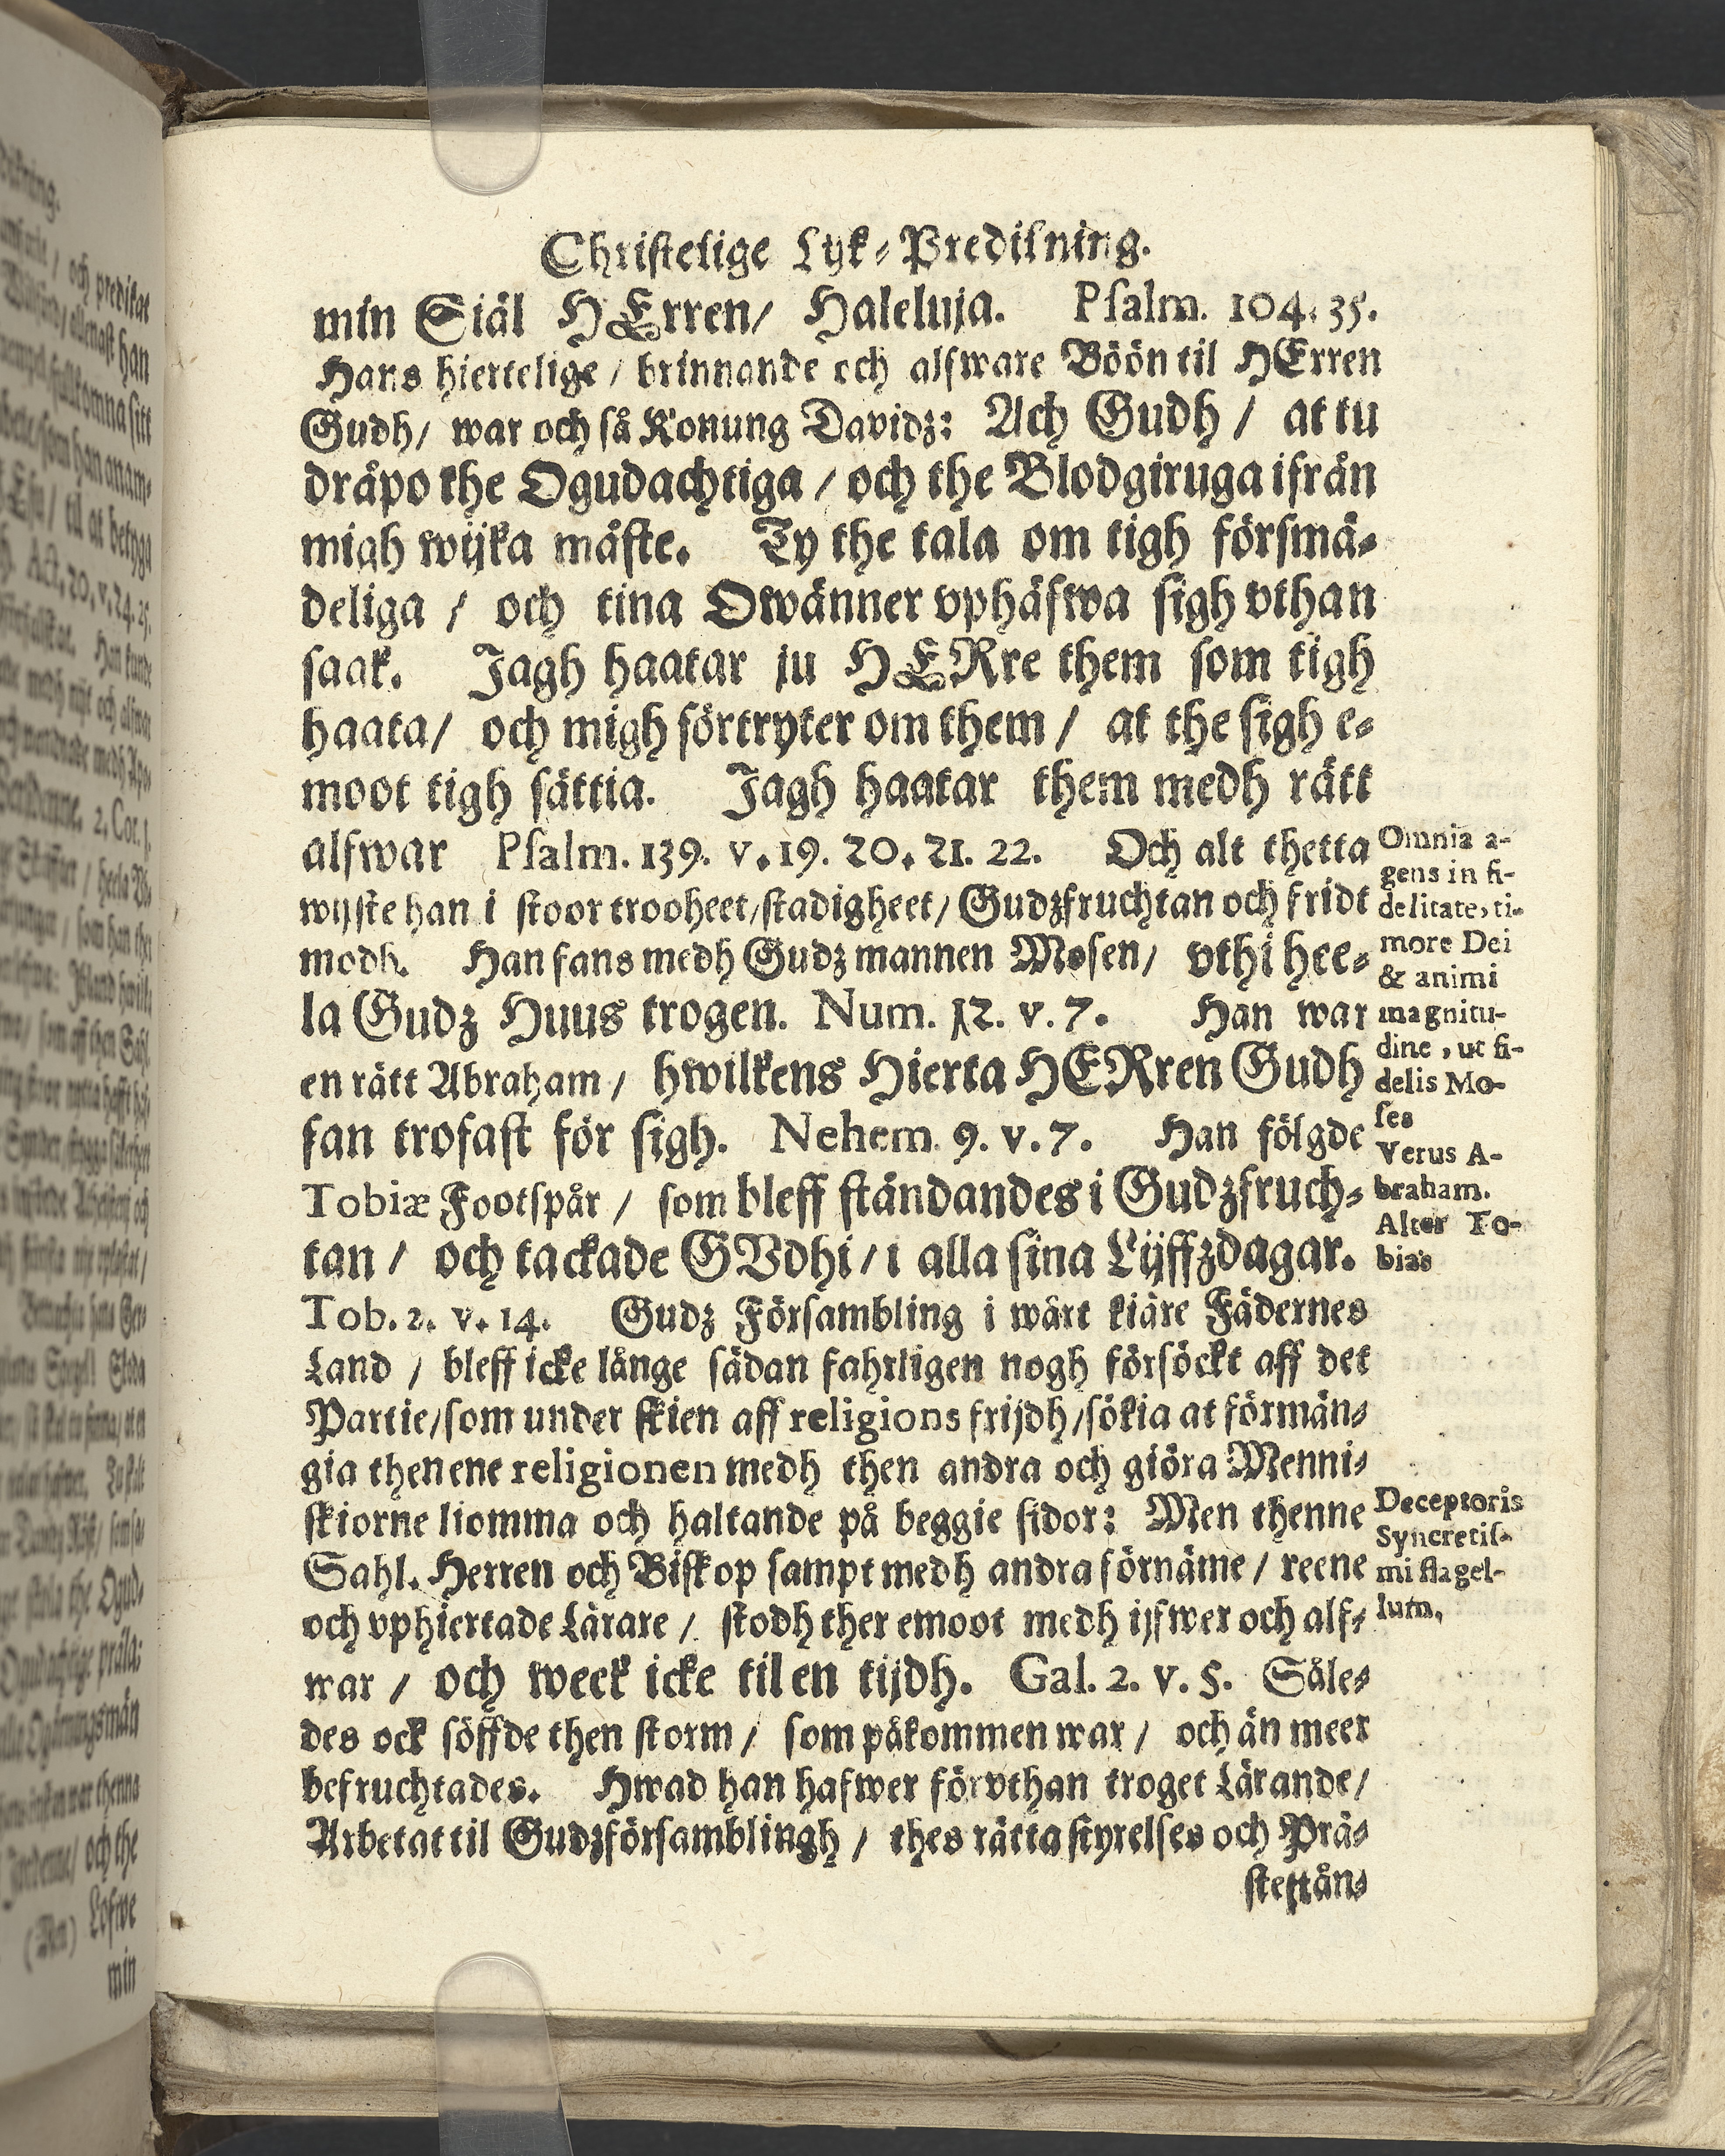 Christelige Lijk-Predikning.
min Siäl HErren/ Haleluja. Psalm. 104. 35.
Hans hiertelige / brinnande och alfware Böön til HErren
Gudh/ war och så Konung Davidz: Ach Gudh / at tu
dråpo the Ogudachtiga / och the Blodgiruga ifrån
migh wijka måste. Ty the tala om tigh försmä-
deliga / och tina Owänner vphäfwa sigh vthan
saak. Jagh haatar ju HERre them som tigh
haata/ och migh förtryter om them / at the sigh e-
moot tigh sättia. Jagh haatar them medh rätt
alfwar Psalm. 139. v. 19. 20. 21. 22. Och alt thetta
wijste han i stoor trooheet/stadigheet/ Gudzfruchtan och fridt
modh. Han fans medh Gudz mannen Mosen/ vthi hee-
la Gudz Huus trogen. Num. 12. v. 7. Han war
en rätt Abraham / hwilkens Hierta HERren Gudh
fan trofast för sigh. Nehem. 9. v. 7. Han fölgde
Tobiæ Footspår / som bleff ståndandes i Gudzfruch-
tan / och tackade GVdhi / i alla sina Lijffzdagar.
Tob. 2. v. 14. Gudz Försambling i wårt kiäre Fädernes
Land / bleff icke långe sådan fahrligen nogh försöckt aff det
Partie/som under skien aff religions frijdh/sökia at förmän-
gia then ene religionen medh then andra och giöra Menni-
skiorne liomma och haltande på beggie sidor: Men thenne
Sahl. Herren och Biskop sampt medh andra förnäme / reene
och vphiertade Lärare / stodh ther emoot medh ijfwer och alf-
war / och week icke til en tijdh. Gal. 2. v. 5. Såle-
des ock söffde then storm / som påkommen war / och än meer
befruchtades. Hwad han hafwer förvthan troget Lärande/
Arbetat til Gudzförsamblingh / thes rätta styrelses och Prä-
stestån-
Omnia a-
gens in fi-
delitate, ti-
more Dei
& animi
magnitu-
dine, ut fi-
delis Mo-
ses
Verus A-
braham.
Alter To-
bias
Deceptoris
Syncretis-
mi flagel-
lum.